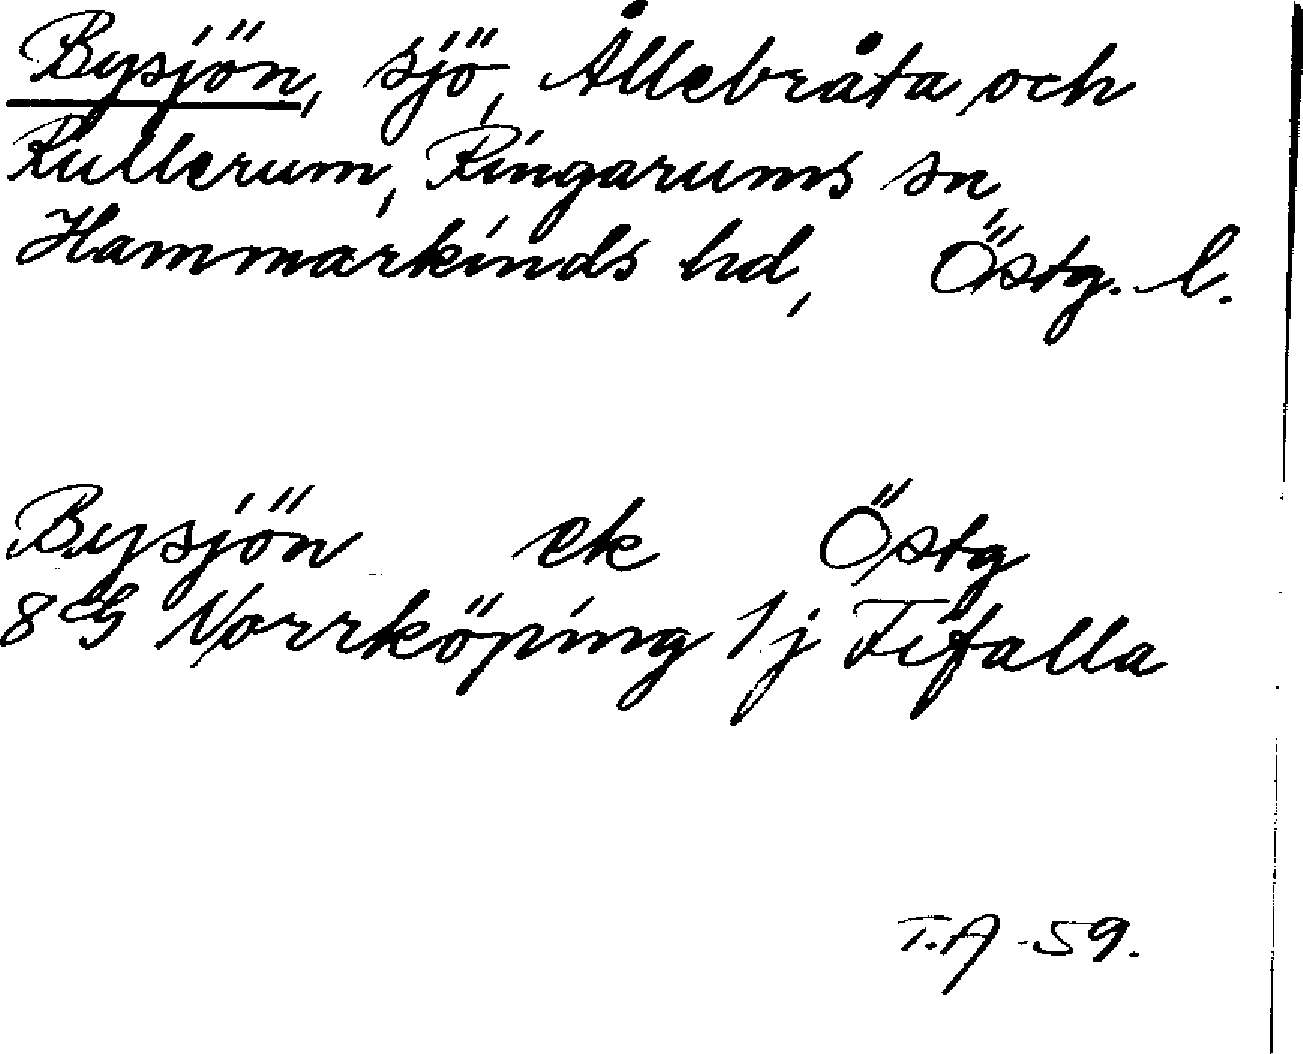 Bysjön, sjö, Ållebråta och
Rullerum, Ringarums sn,
Hammarkinds hd, Östg. l.
Bysjön ek Östg
8G Norrköping 1j Fifalla
T.A -59.